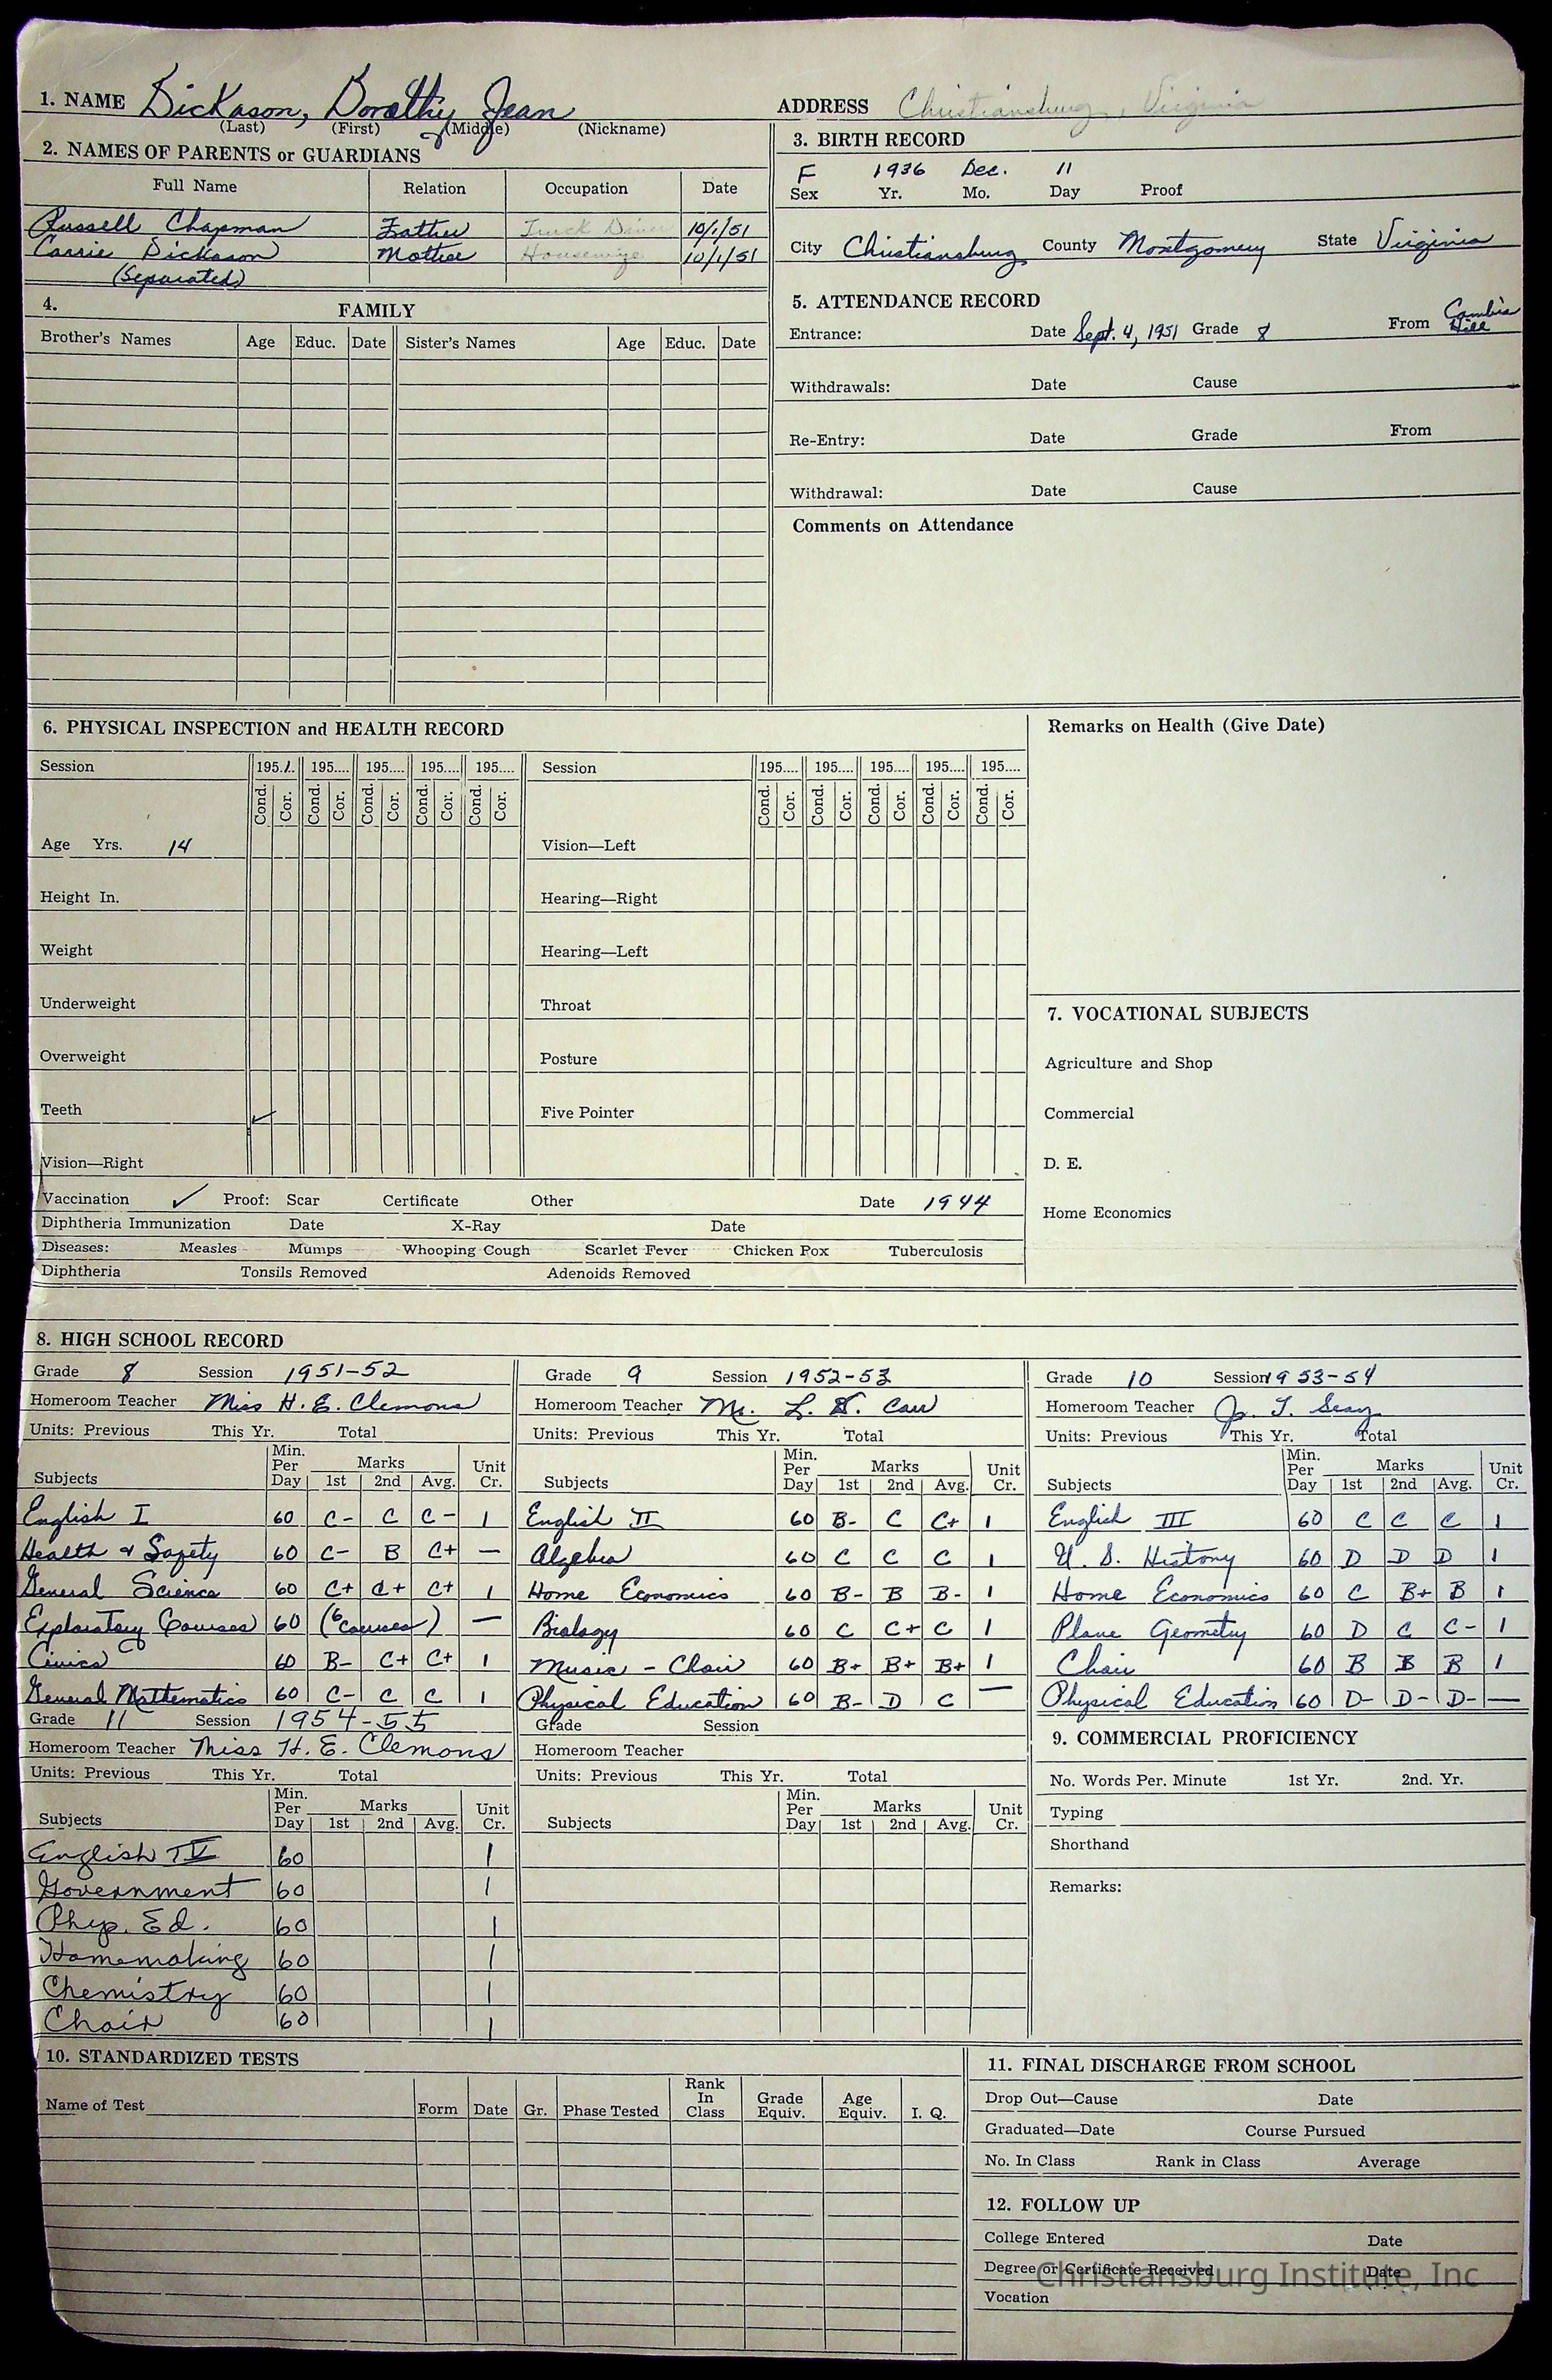 1. NAME Dickason, Dorothy Jean ADDRESS Christiansburg, Virginia
(Last) (First) (Middle) (Nickname)
2. NAMES OF PARENTS or GUARDIANS
Full Name Relation Occupation Date
Russell Chapman Father Truck Driver 10/1/51
Carrie Dickason Mother Housewife 10/1/51
(Separated)
3. BIRTH RECORD
F 1936 Dec. 11
Sex Yr. Mo. Day Proof
City Christiansburg County Montgomery State Virginia
4. FAMILY
Brother's Names Age Educ. Date Sister's Names Age Educ. Date
5. ATTENDANCE RECORD
Entrance: Date Sept. 4, 1951 Grade 8 From Cambria Hill
Withdrawals: Date Cause
Re-Entry: Date Grade From
Withdrawal: Date Cause
Comments on Attendance
6. PHYSICAL INSPECTION and HEALTH RECORD
Session 195.1. 195.... 195.... 195.... 195.... Session 195.... 195.... 195.... 195.... 195....
Cond. Cor. Cond. Cor. Cond. Cor. Cond. Cor. Cond. Cor. Cond. Cor. Cond. Cor. Cond. Cor. Cond. Cor. Cond. Cor.
Age Yrs. 14 Vision—Left
Height In. Hearing—Right
Weight Hearing—Left
Underweight Throat
Overweight Posture
Teeth ✓ Five Pointer
Vision—Right
Vaccination ✓ Proof: Scar Certificate Other Date 1944
Diphtheria Immunization Date X-Ray Date
Diseases: Measles Mumps Whooping Cough Scarlet Fever Chicken Pox Tuberculosis
Diphtheria Tonsils Removed Adenoids Removed
Remarks on Health (Give Date)
7. VOCATIONAL SUBJECTS
Agriculture and Shop
Commercial
D. E.
Home Economics
8. HIGH SCHOOL RECORD
Grade 8 Session 1951-52
Homeroom Teacher Miss H. E. Clemons
Units: Previous This Yr. Total
Subjects Min. Per Day Marks 1st 2nd Avg. Unit Cr.
English I 60 C- C C- 1
Health & Safety 60 C- B C+ —
General Science 60 C+ C+ C+ 1
Exploratory Courses 60 (6 Courses) —
Civics 60 B- C+ C+ 1
General Mathematics 60 C- C C 1
Grade 9 Session 1952-53
Homeroom Teacher Mr. L. D. Carr
Units: Previous This Yr. Total
Subjects Min. Per Day Marks 1st 2nd Avg. Unit Cr.
English II 60 B- C C+ 1
Algebra 60 C C C 1
Home Economics 60 B- B B- 1
Biology 60 C C+ C 1
Music - Choir 60 B+ B+ B+ 1
Physical Education 60 B- D C —
Grade 10 Session 1953-54
Homeroom Teacher J. T. Seay
Units: Previous This Yr. Total
Subjects Min. Per Day Marks 1st 2nd Avg. Unit Cr.
English III 60 C C C 1
U. S. History 60 D D D 1
Home Economics 60 C B+ B 1
Plane Geometry 60 D C C- 1
Choir 60 B B B 1
Physical Education 60 D- D- D- —
Grade 11 Session 1954-55
Homeroom Teacher Miss H. E. Clemons
Units: Previous This Yr. Total
Subjects Min. Per Day Marks 1st 2nd Avg. Unit Cr.
English IV 60 1
Government 60 1
Phys. Ed. 60 1
Homemaking 60 1
Chemistry 60 1
Choir 60 1
Grade Session
Homeroom Teacher
Units: Previous This Yr. Total
Subjects Min. Per Day Marks 1st 2nd Avg. Unit Cr.
9. COMMERCIAL PROFICIENCY
No. Words Per. Minute 1st Yr. 2nd. Yr.
Typing
Shorthand
Remarks:
10. STANDARDIZED TESTS
Name of Test Form Date Gr. Phase Tested Rank In Class Grade Equiv. Age Equiv. I. Q.
11. FINAL DISCHARGE FROM SCHOOL
Drop Out—Cause Date
Graduated—Date Course Pursued
No. In Class Rank in Class Average
12. FOLLOW UP
College Entered Date
Degree or Certificate Received Date
Christiansburg Institute, Inc
Vocation